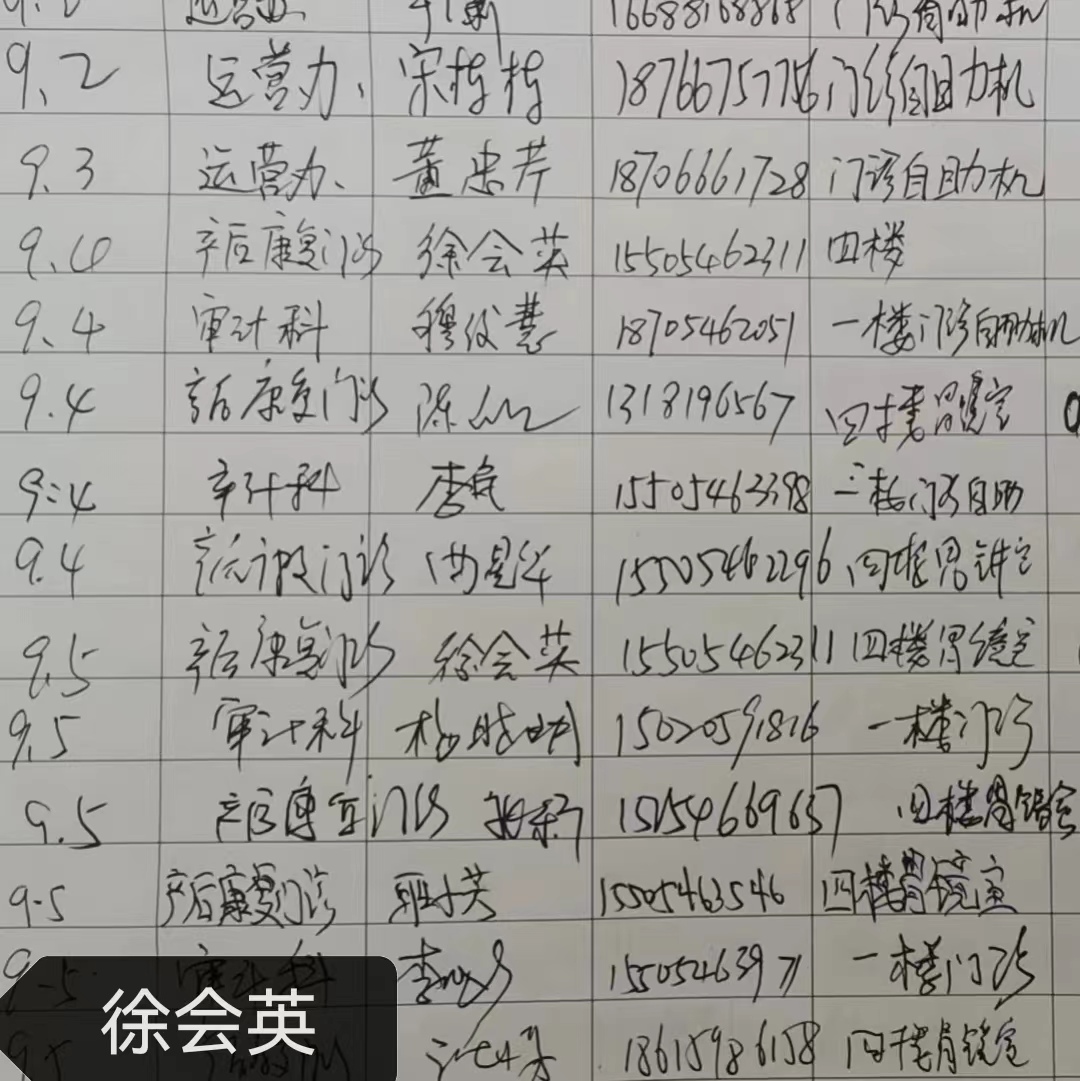 运营办 16688168868 门诊自助机
9.2 运营办、 宋梅梅 18766757756 门诊自助机
9.3 运营办、 董忠芹 18706661728 门诊自助机
9.4 产后康复门诊 徐会英 15505462311 四楼
9.4 审计科 穆仪慧 18705462051 一楼门诊自助机
9.4 产后康复门诊 陈 1318196567 四楼胃镜室
9:4 审计科 李 15505463398 三楼门诊自助
9.4 产后康复门诊 15505462296 四楼胃镜室
9.5 产后康复门诊 徐会英 15505462311 四楼胃镜室
9.5 审计科 杨晓明 15020591816 一楼门诊
9.5 产后康复门诊 15154669657 四楼胃镜室
9-5 产后康复门诊 耿小英 15505463546 四楼胃镜室
9-5 审计科 李 15505463971 一楼门诊
9.5 18615986158 四楼胃镜室
徐会英